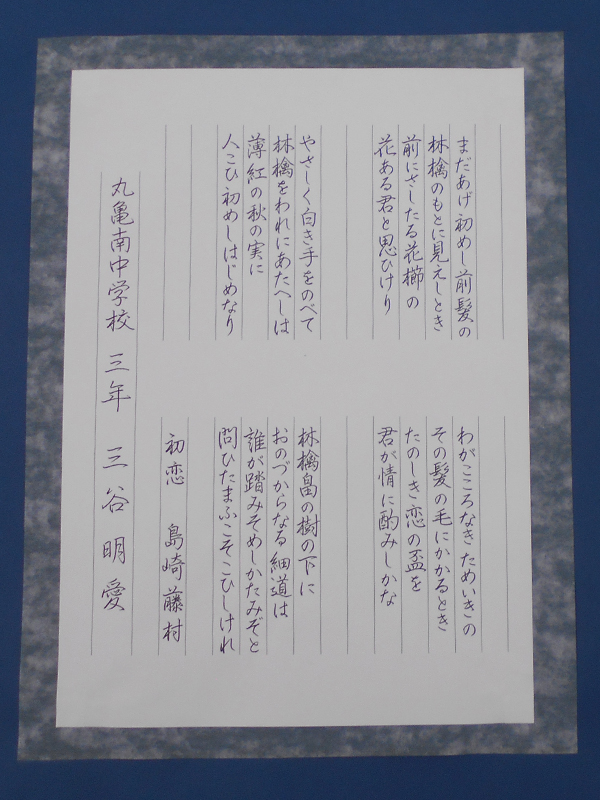 まだあげ初めし前髪の
林檎のもとに見えしとき
前にさしたる花櫛の
花ある君と思ひけり
やさしく白き手をのべて
林檎をわれにあたへしは
薄紅の秋の実に
人こひ初めしはじめなり
わがこころなきためいきの
その髪の毛にかかるとき
たのしき恋の盃を
君が情に酌みしかな
林檎畠の樹の下に
おのづからなる細道は
誰が踏みそめしかたみぞと
問ひたまふこそこひしけれ
初恋 島崎藤村
丸亀南中学校 三年 三谷明愛